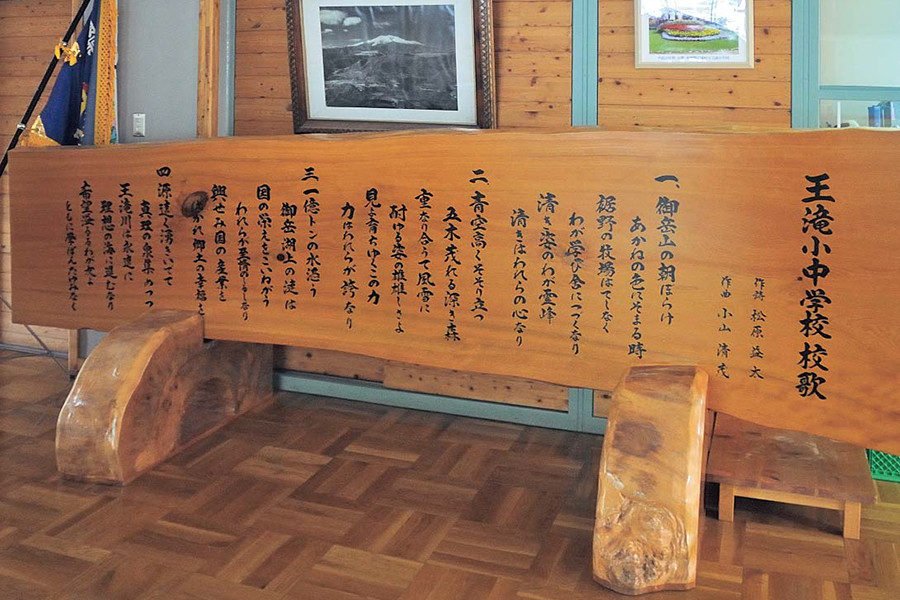 王滝小中学校校歌
作詩 松原益太
作曲 小山清茂
一、御岳山の朝ぼらけ
あかねの色にそまる時
裾野の牧場はてしなく
わが学び舎につづくなり
清き姿のわが霊峰
清きはわれらの心なり
二、青空高くそそり立つ
五木茂れる深き森
重なり合うて風雪に
耐ゆる姿の雄雄しさよ
見よ育ちゆくこの力
力はわれらが誇なり
三、一億トンの水湛う
御岳湖上の漣は
国の栄えとこいねがう
われらが
興せみ国の産業と
われ郷土の幸福と
四、源遠く湧きいでて
真理の泉集めつつ
王滝川は永遠に
理想の海に進むなり
希望
ともに学ばん